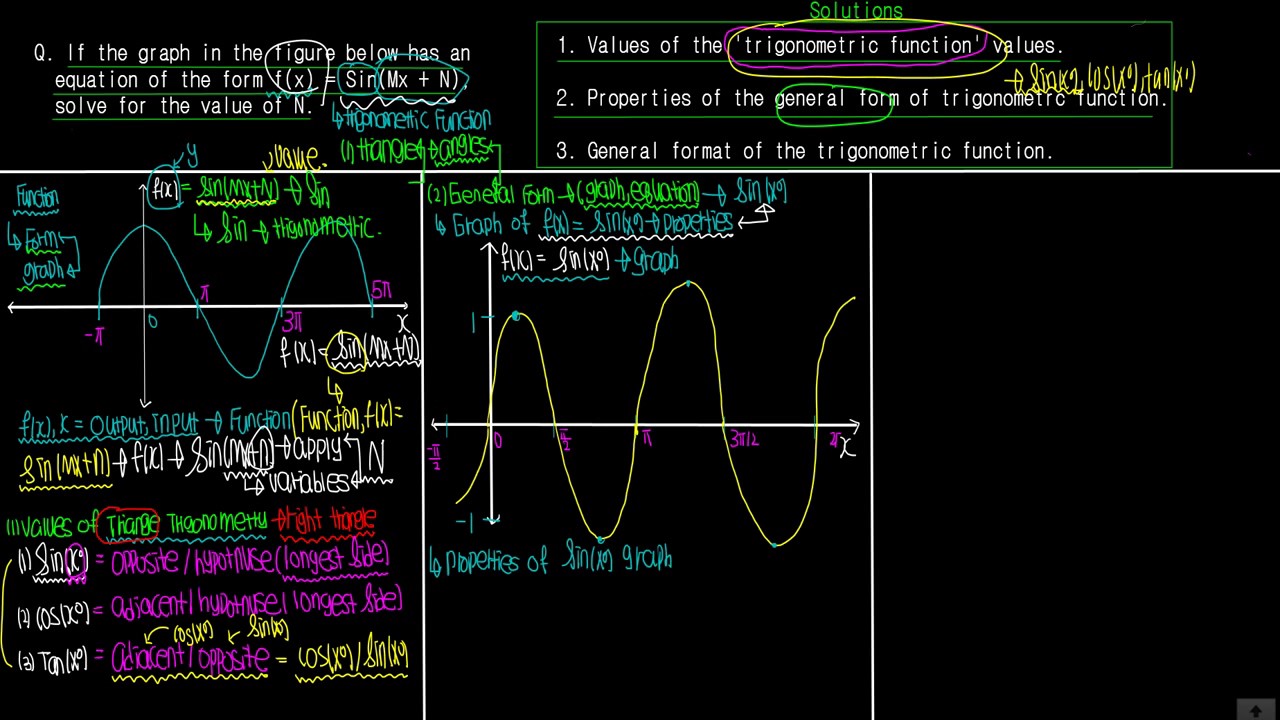 Q. If the graph in the figure below has an
equation of the form f(x) = Sin(Mx + N)
solve for the value of N.
Solutions
1. Values of the 'trigonometric function' values.
→ Sin(x°), cos(x°), tan(x°)
2. Properties of the general form of trigonometric function.
3. General format of the trigonometric function.
↳ trigonometric Function
(1) triangle → angles
y
value.
f(x) = Sin(Mx+N) → Sin
↳ Sin → trigonometric.
Function
↳ Form
graph
-π
0
π
3π
5π
x
f(x) = Sin(Mx+N)
f(x), x = output, input → Function (Function, f(x) =
Sin(Mx+N) → f(x) → Sin(Mx+n) → apply N
↳ variables
(1) values of Triangle Trigonometry → right triangle
(1) Sin(x°) = opposite / hypotnuse (longest side)
(2) cos(x°) = adjacent / hypotnuse (longest side)
cos(x°) Sin(x°)
(3) Tan(x°) = adjacent / opposite = cos(x°) / Sin(x°)
(2) General Form → (graph, equation) → Sin(x°)
↳ Graph of f(x) = Sin(x°) → properties
f(x) = Sin(x°) → graph
1
-π/2
0
π/2
π
3π/2
2π
x
-1
↳ properties of Sin(x°) graph